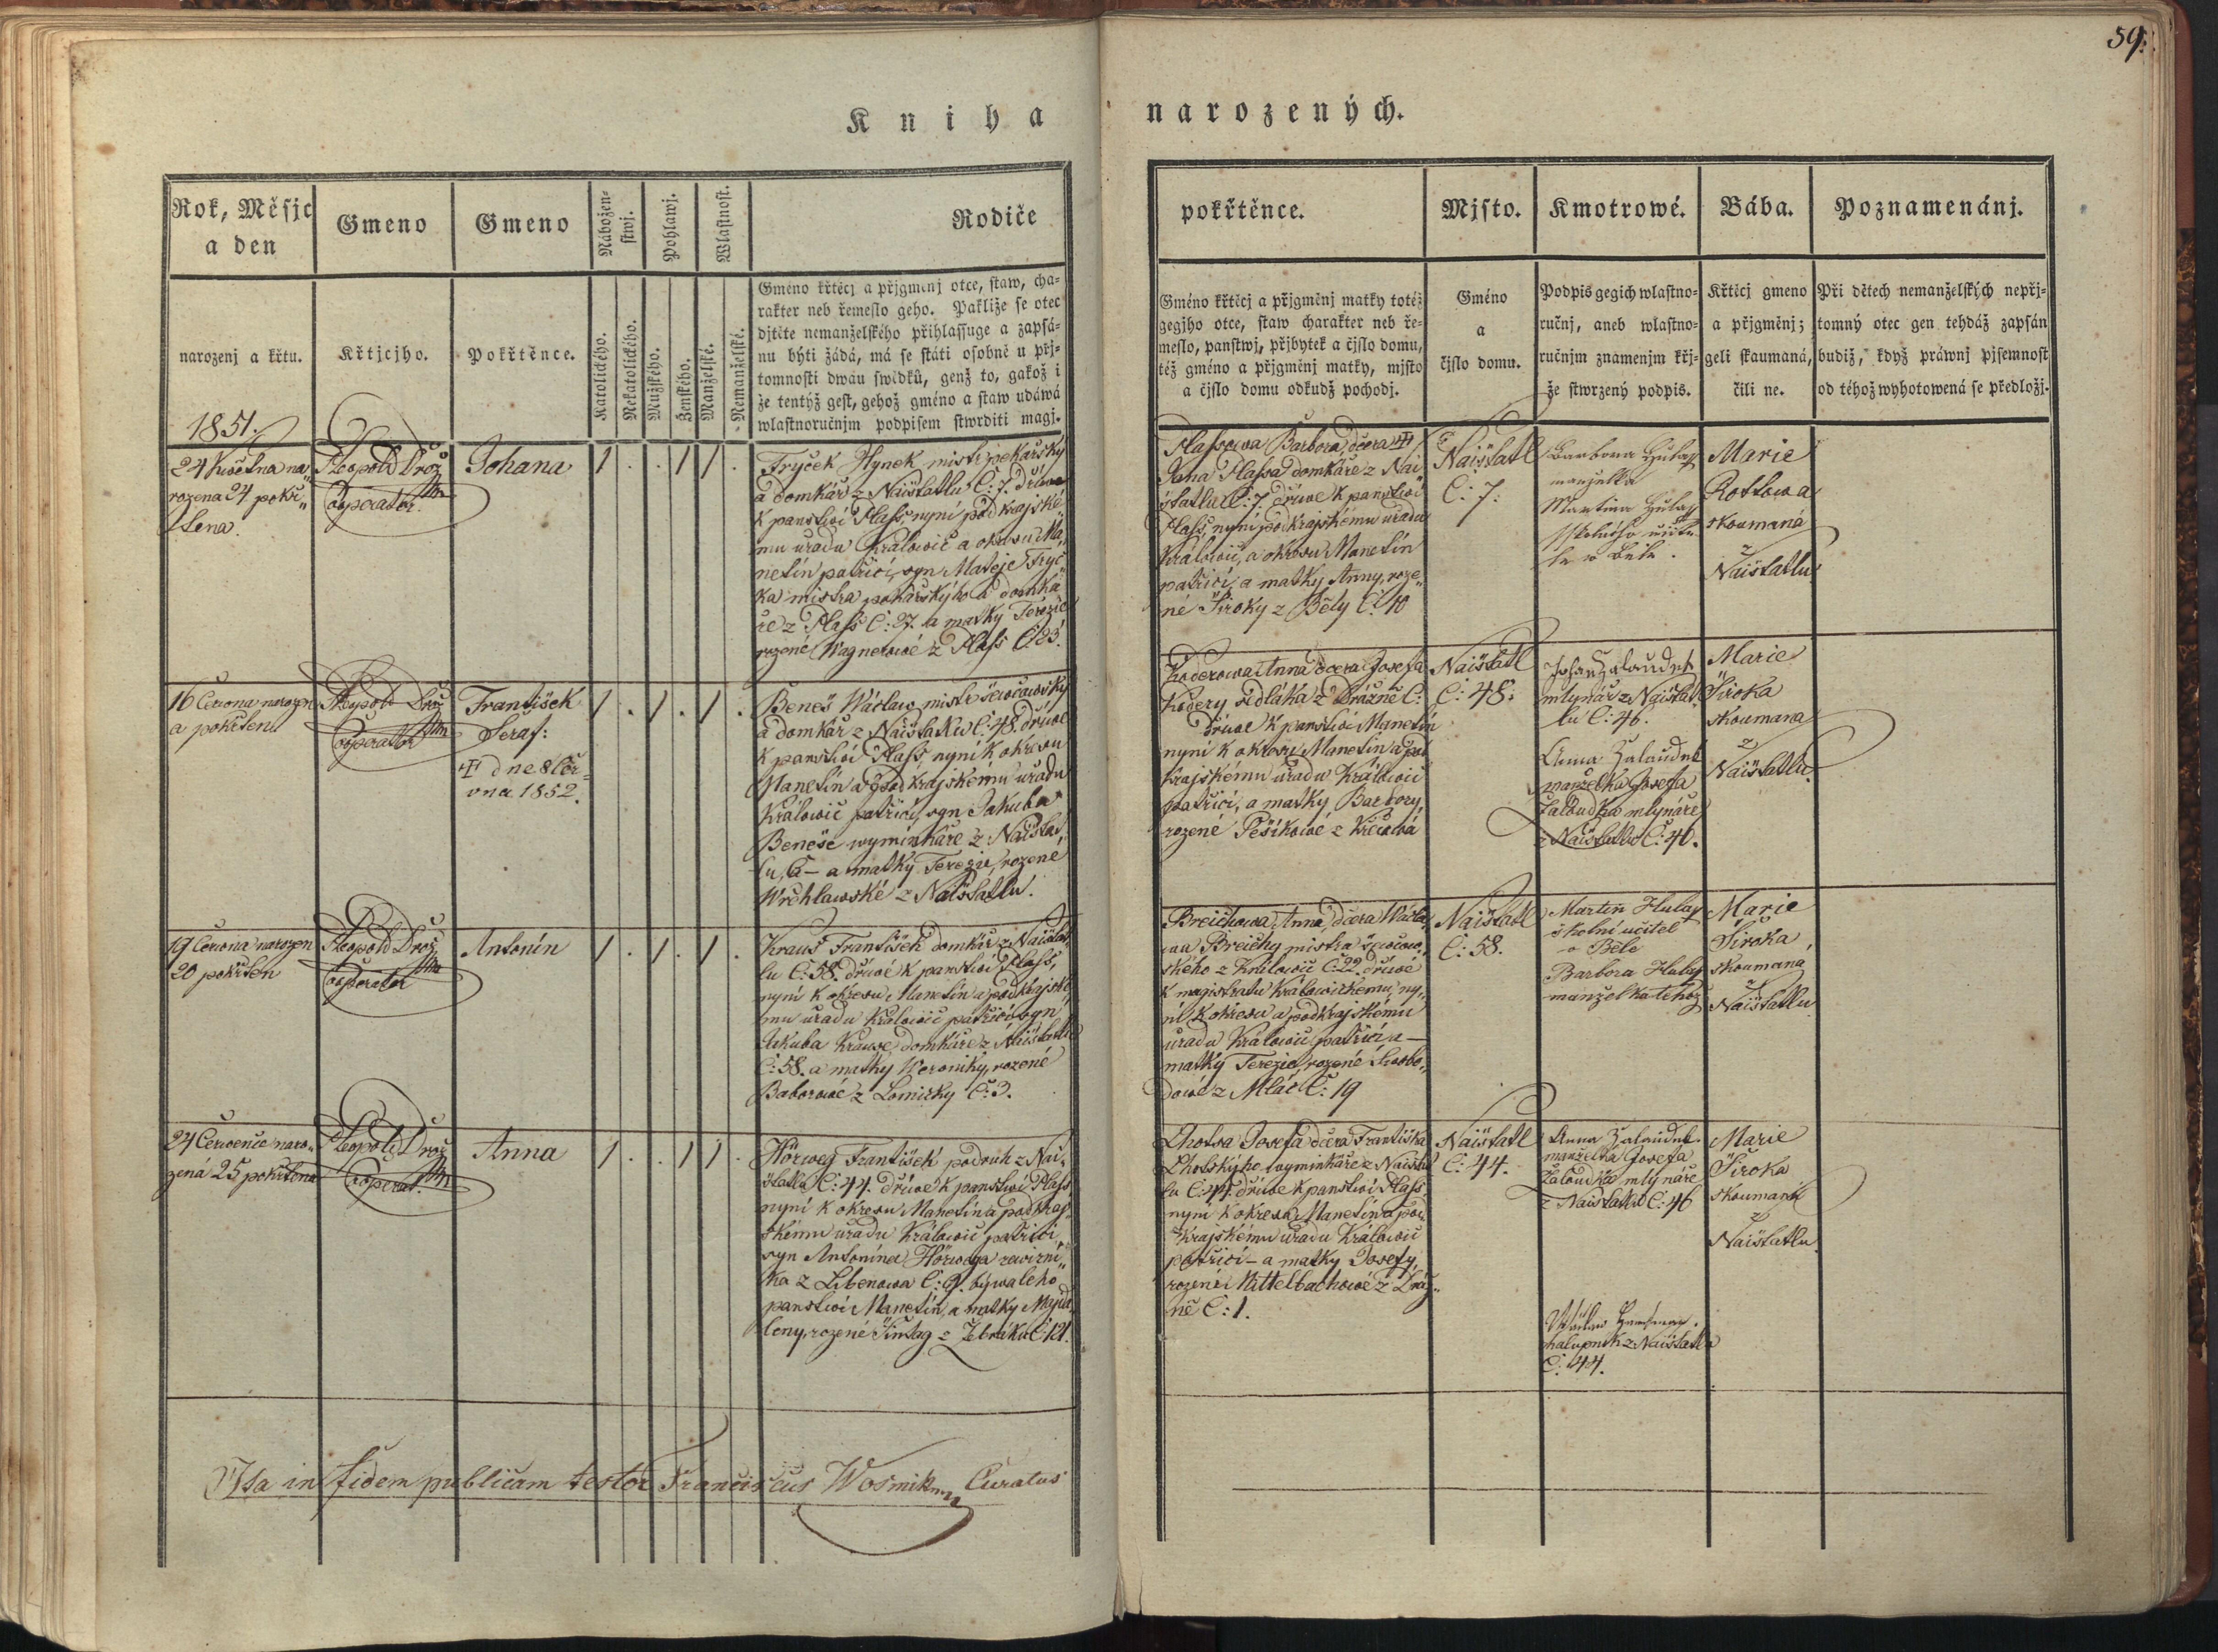 59.
Kniha narozených.
Rok, Měsjc
a den
Gmeno
Gmeno
Nábožen-
stwj.
Pohlawj.
Wlastnost.
Rodiče
pokřtěnce.
Mjsto.
Kmotrowé.
Bába.
Poznamenánj.
narozenj a křtu.
Křtjcjho.
Pokřtěnce.
Katolického.
Nekatolického.
Mužského.
Ženského.
Manželské.
Nemanželské.
Gméno křtěcj a přjgmenj otce, staw, cha-
rakter neb řemeslo geho. Pakliže se otec
djtěte nemanželského přihlassuge a zapsá-
nu býti žádá, má se státi osobně u přj-
tomnosti dwau swědků, genž to, gakož i
že tentýž gest, gehož gméno a staw udáwá
wlastnoručnjm podpisem stwrditi magj.
Gméno křtěcj a přjgměnj matky totéž
gegjho otce, staw charakter neb ře-
meslo, panstwj, přjbytek a čjslo domu,
též gméno a přjgměnj matky, mjsto
a čjslo domu odkudž pochodj.
Gméno
a
čjslo domu.
Podpis gegich wlastno-
ručnj, aneb wlastno-
ručnjm znamenjm křj-
že stwrzený podpis.
Křtěcj gmeno
a přjgměnj;
geli skaumaná,
čili ne.
Při dětech nemanželských nepřj-
tomný otec gen tehdáž zapsán
budiž, když práwnj pjsemnost
od téhož wyhotowená se předložj.
1851.
24 Května na
rozena 24 pokř„
tena
Leopold Drož
Cooperator
Johana
1 . . 1 1 .
Tryček Hynek mistr pekařský
a domkář z Naištatlu C: 7. dříve
k panstwí Plass, nyní pod krajské„
mu uřadu Kralowic a okresu Ma„
netín patřící, syn Matěje Tryč„
ka mistra pekařského a domká
ře z Plass C: 27. a matky Terezie
rozené Wagnerowé z Plass C: 23.
Plassowa Barbora, dcera
Jana Plassa domkáře z Nai
štatlu C: 7 dříwe k panstwí
Plass, nyní pod krajskému uřadu
Králowic, a okresu Manetín
patřící, a matky Anny, roze„
né Široky z Běly C: 10
Naištatl
C: 7.
Barbora Hulay
manzelka
Martina Hulay
Marie
Rottowa
skoumaná
z
Naištatlu
16 Června narozen
a pokřten
Leopold Drož
Cooperator
František
Seraf:
dne 8 Čer=
vna 1852.
1 . 1 . 1 .
Beneš Wáclaw, mistr ševcowský
a domkář z Naištatlu C: 48. dříwe
k panstwí Plass, nyní k okresu
Manetín a pod krajskému uřadu
Králowic patřící, syn Jakuba
Beneše wymínkáře z Naištat„
lu, C — a matky Terezie, rozené
Wrchlawské z Naištatlu.
Koderowa Anna dcera Josefa
Kodery sedláka z Dražně C:
dříwe k panstwí Manetín
nyní k okresu Manetín a pod
krajskému uřadu Králowic
patřící, a matky Barbory,
rozené Pešíkowé z
Naištatl
C: 48.
mlynář z Naištat
lu C: 46.
Anna Zalaudek
manželka Josefa
Žaloudka mlynáře
z Naištatlu C: 46.
Marie
Široka
skoumana
z
Naištatlu
19 Června narozen
20 pokřten
Leopold Drož
Cooperator
Antonín
1 . 1 . 1 .
Kraus František domkář z Naištat
lu C: 58. dříwé k panstwí Plass,
nyní k okresu Manetín a pod krajské„
mu uřadu Králowic patřící, syn
Jakuba Krause, domkáře z Naištatlu
C: 58. a matky Weroniky, rozené
Baborowé z Lomičky C: 3.
Breichowa, Anna, dcera Wácla„
wa Breichy mistra ševcow„
ského z Králowic C: 22. dříwé
k magistratu Králowickému, ny„
ní k okresu a pod krajskému
uřadu Králowic patřící a —
matky Terezie, rozené Swobo„
dowé z Mlác C: 19
Naištatl
C: 58.
Martin Hulay
školní učitel
v Běle
Barbora Hulay
manželka téhož
Marie
Široka,
skoumaná
z
Naištatlu
24 Července naro„
zena 25 pokřtena
Leopold Drož
Cooperat.
Anna
1 . . 1 1 .
Hörweg František podruh z Nai„
štatlu C: 44. dříwe k panstwí Plass,
nyní k okresu Manetín a pod kraj„
skému uřadu Králowic patřící,
syn Antonína Hörwega rewirní„
ka z Libenowa C: 9. býwalého
panstwí Manetín, a matky Majda„
leny, rozené Šimtag z Žebráku C: 121.
Lhotsa Josefa dcera Františka
Lhotskýho wymínkáře z Naištat
lu C: 44. dříwe k panstwí Plass,
nyní k okresu Manetín a pod
krajskému uřadu Králowic
patřící — a matky Josefy,
rozené Mittelbachowé z Draž„
ně C: 1.
Naištatl
C: 44.
Anna Zalaudek
manželka Josefa
Žaloudka mlynáře
z Naištatlu C: 46
chalupník z Naištatlu
C: 44.
Marie
Široka
skoumaná
z
Naištatlu
Ita in fidem publicam testor Franciscus Wosmik Curatus